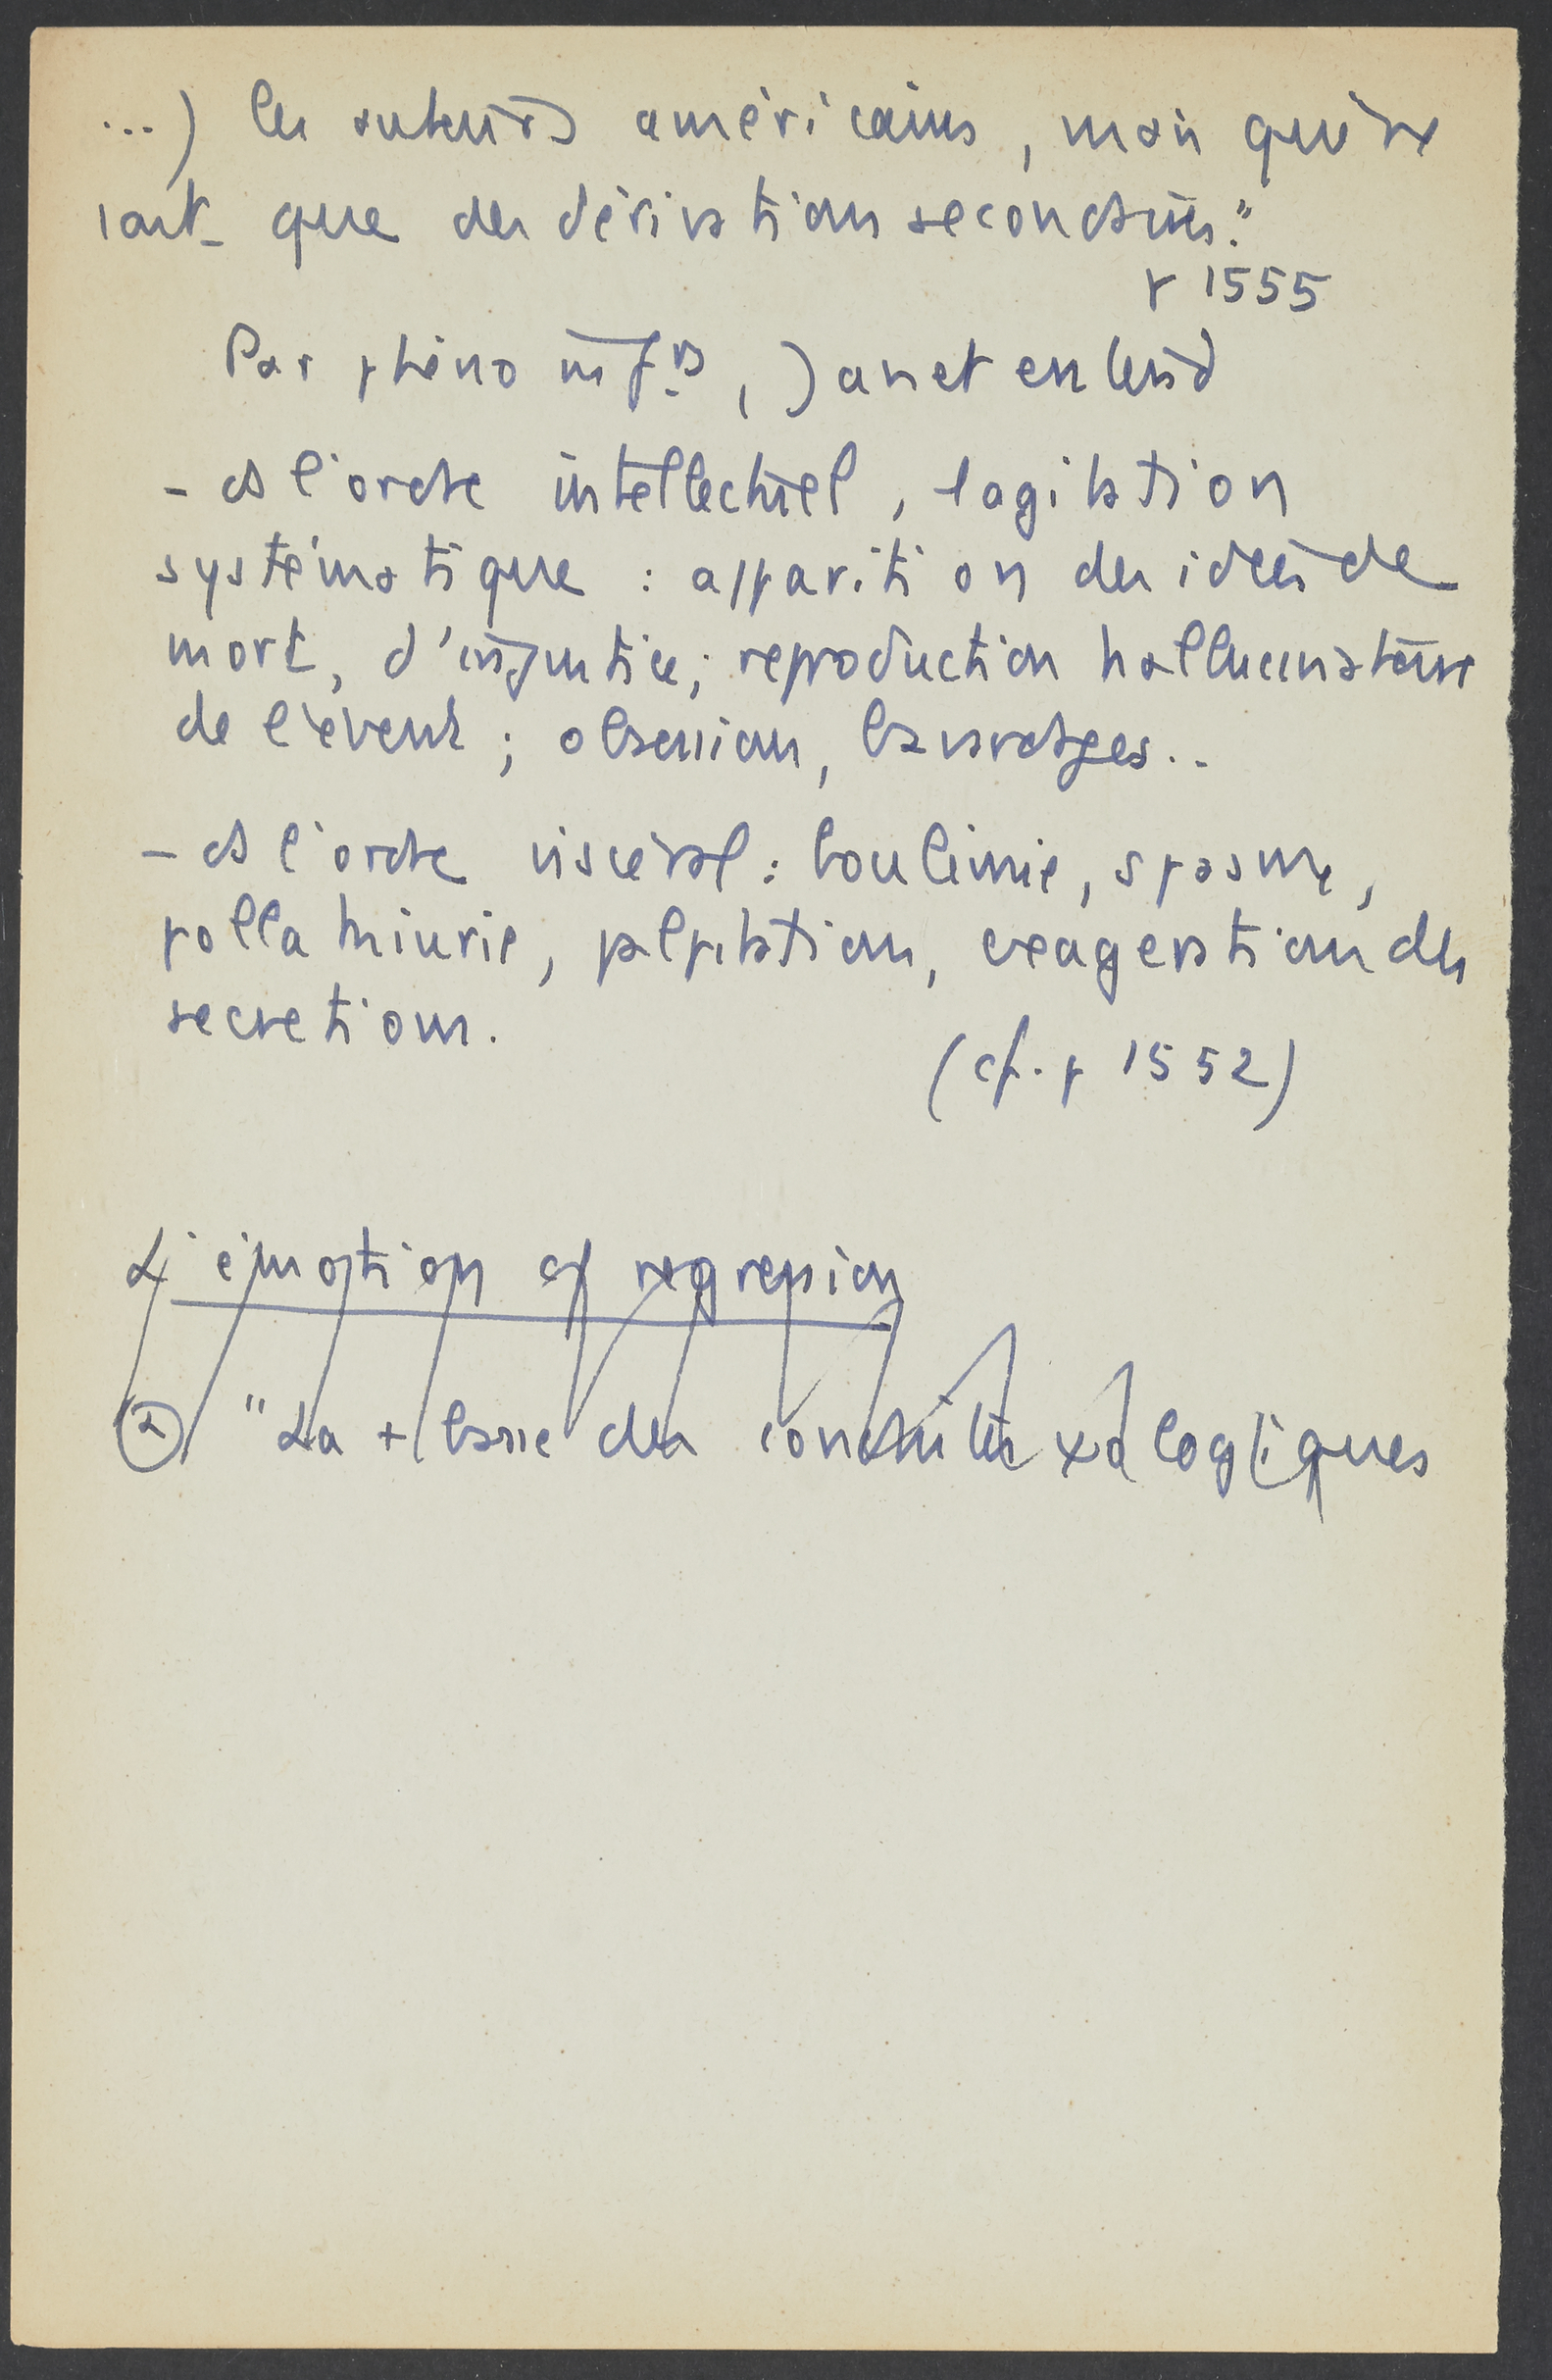 ...) les auteurs américains, mais qui ne
sont que des dérivations secondaires."
p 1555
Par phéno infrs, Janet entend
- ds l'ordre intellectuel, l'agitation
systématique : apparition des idées de
mort, d'injustice; reproduction hallucinatoire
de l'évent; obsession, bavardages..
- ds l'ordre viscéral : boulimie, spasme,
pollakiurie, palpitation, exagération des
secretions.
(cf. p 1552)
L'émotion cf regression
② "La + basse des conduites ψologiques